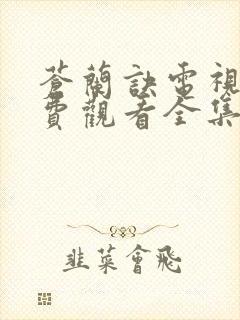 蒼蘭訣電視
費觀看全集
韭菜會飛